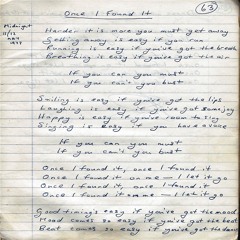 Once I Found It
63
Midnight
11/12
Nov
1977
Harder it is more you must get away
Getting away is easy if you run
Running is easy if you've got the breath
Breathing is easy if you've got the air
If you can you must
If you can't you bust
Smiling is easy if you've got the lips
Laughing is easy if you've got some joy
Happy is easy if you've room to sing
Singing is easy if you have a voice
If you can you must
If you can't you bust
Once I found it, once I found it
Once I found it on me - I let it go
Once I found it, once I found it
Once I found it on me - I let it go
Good timing's easy if you've got the mood
Mood comes so easy if you've got the beat
Beat comes so easy if you've got the